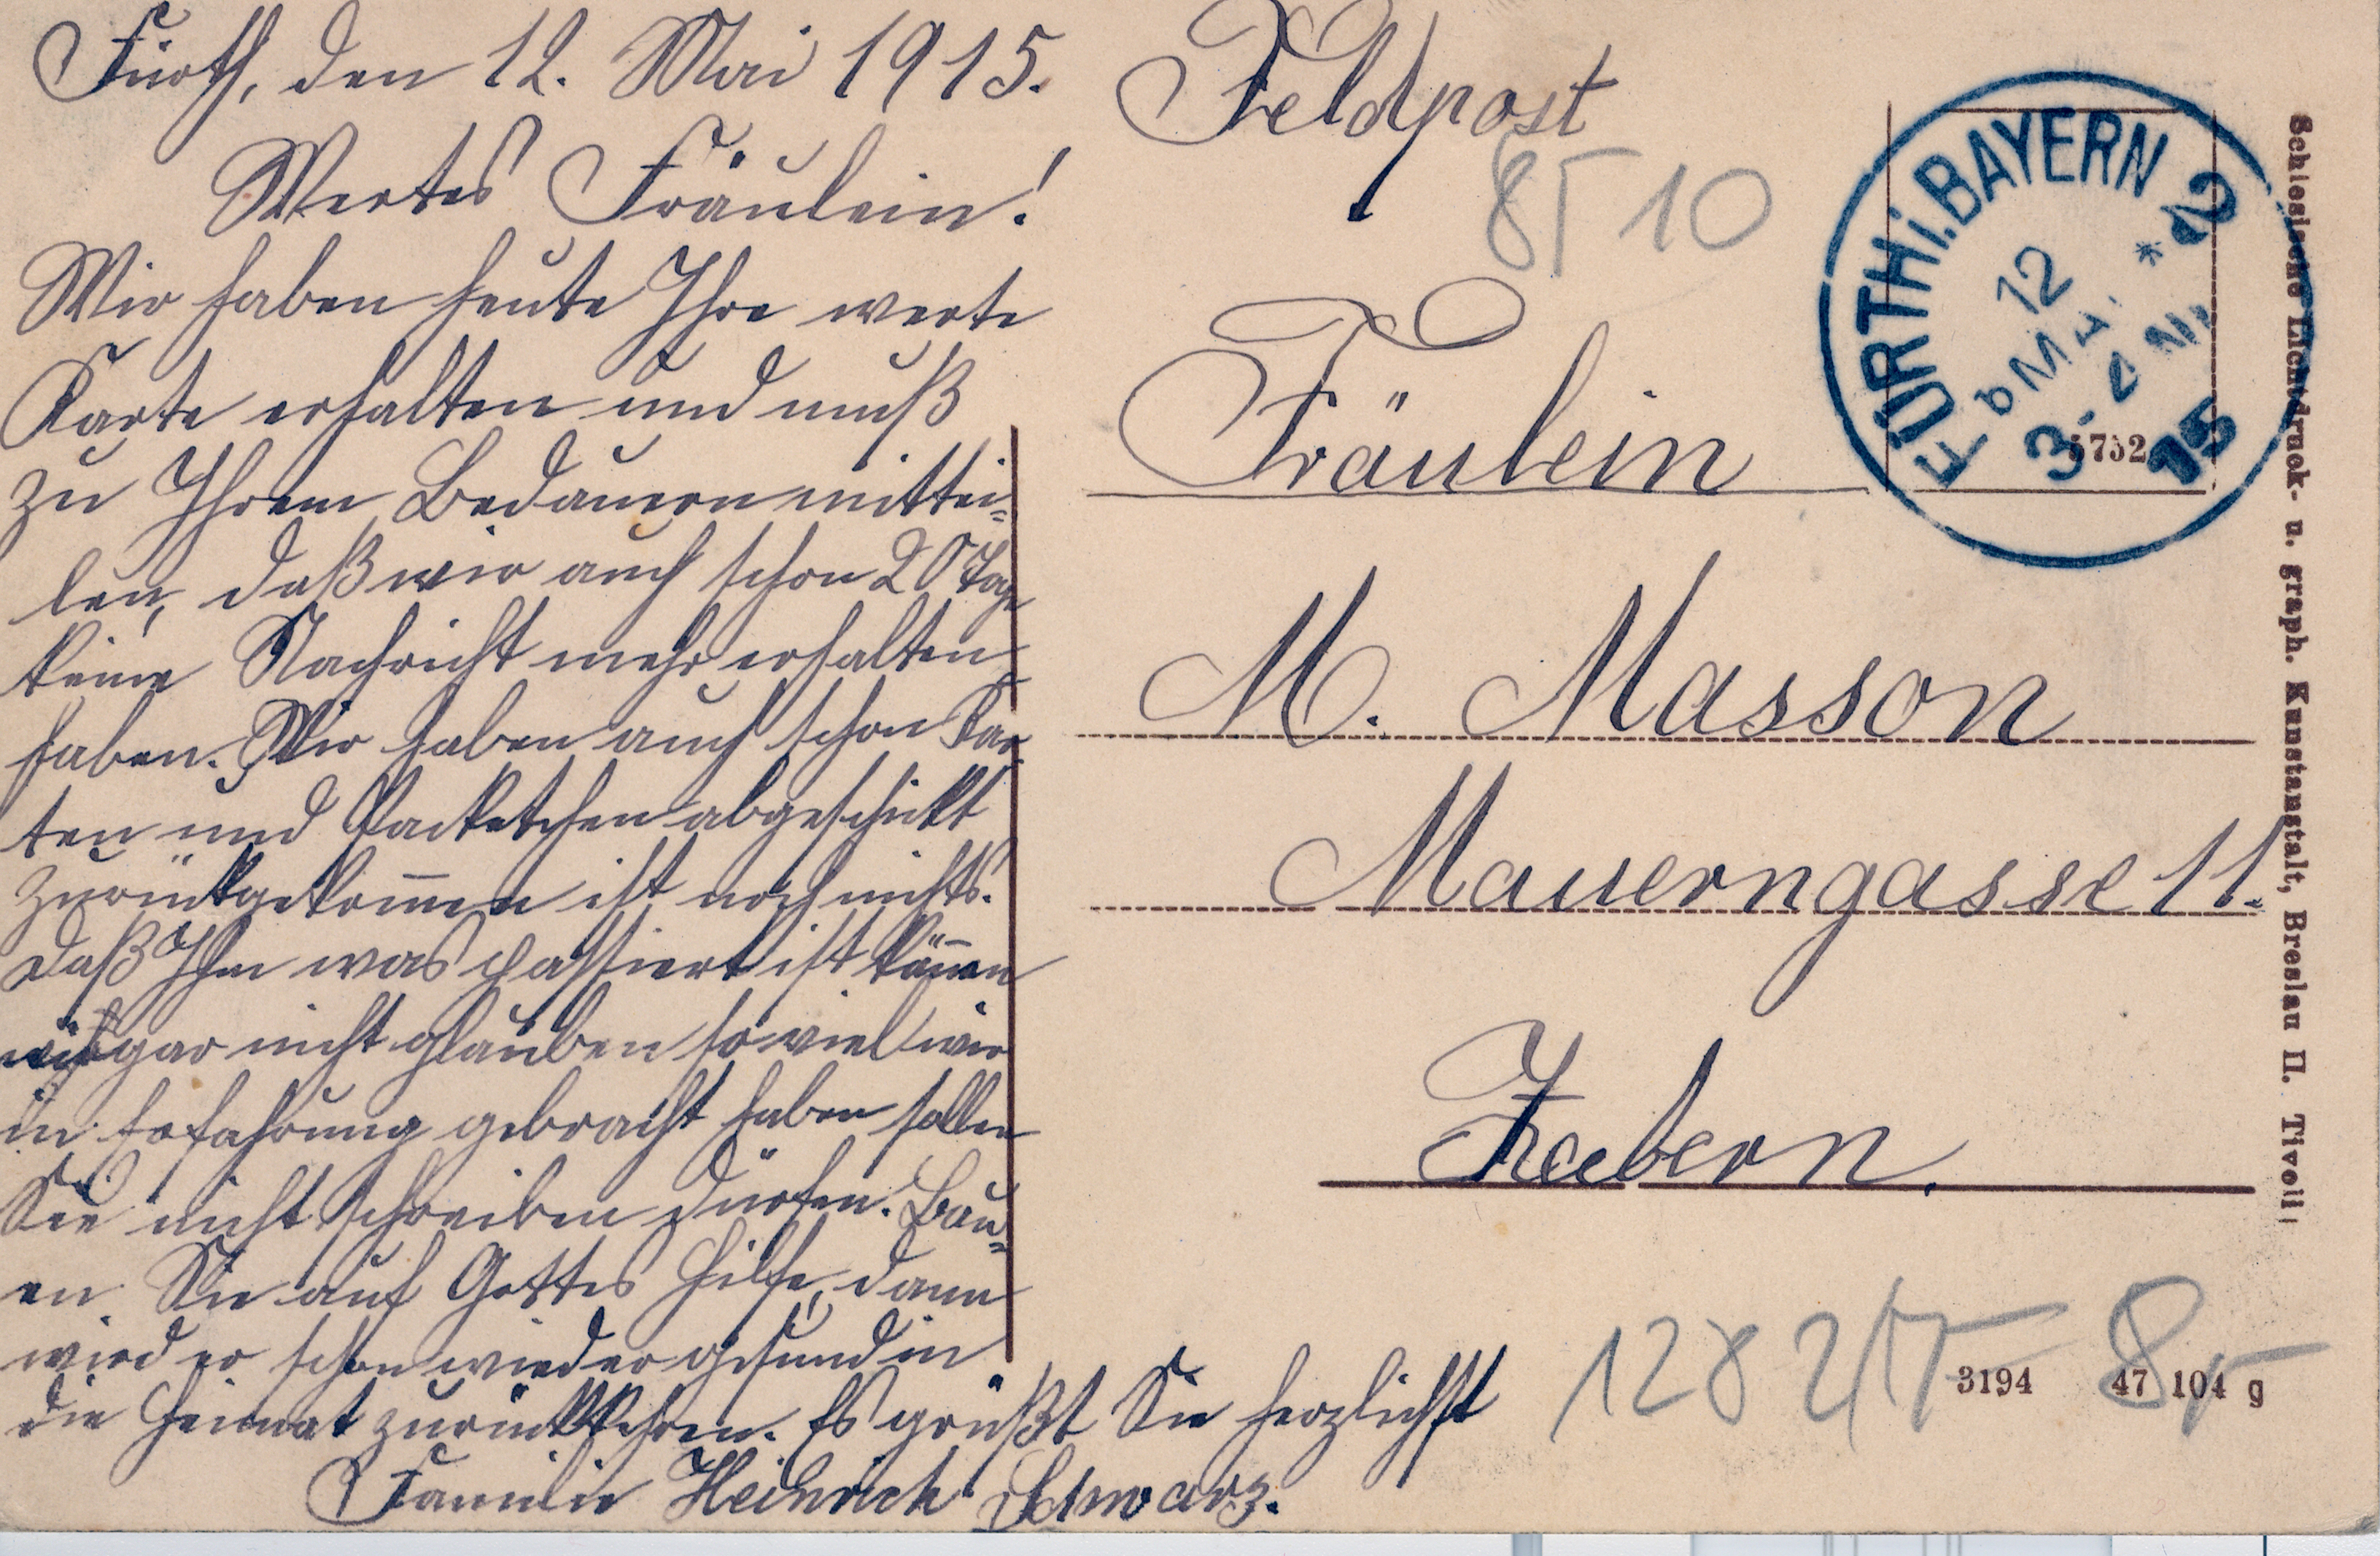 Fürth, den 12. Mai 1915.
Wertes Fräulein!
Wir haben heute Ihre werte
Karte erhalten und muß
zu Ihrem Bedauern mittei=
len, daß wir auch schon 20 Tage
keine Nachricht mehr erhalten
haben. Wir haben auch schon Kar=
ten und Packetchen abgeschickt
zurückgekom̅en ist noch nichts.
Daß Ihm was passiert ist kön̅en
wir gar nicht glauben so viel wir
in Erfahrung gebracht haben sollen
Sie nicht schreiben dürfen. Bau=
en Sie auf Gottes Hilfe, dann
wird er schon wieder gesund in
die Heimat zurückkehren. Es grüßt Sie herzlichst
Familie Heinrich Schwarz.
Feldpost
10
Fräulein
M. Masson
Mauerngasse 11.
Zabern.
FÜRTH i. BAYERN 2
12
MAI
3-4 N.
15
5732
3194 47 104 g
Schlesische Lichtdruck- u. graph. Kunstanstalt, Breslau II. Tivoli